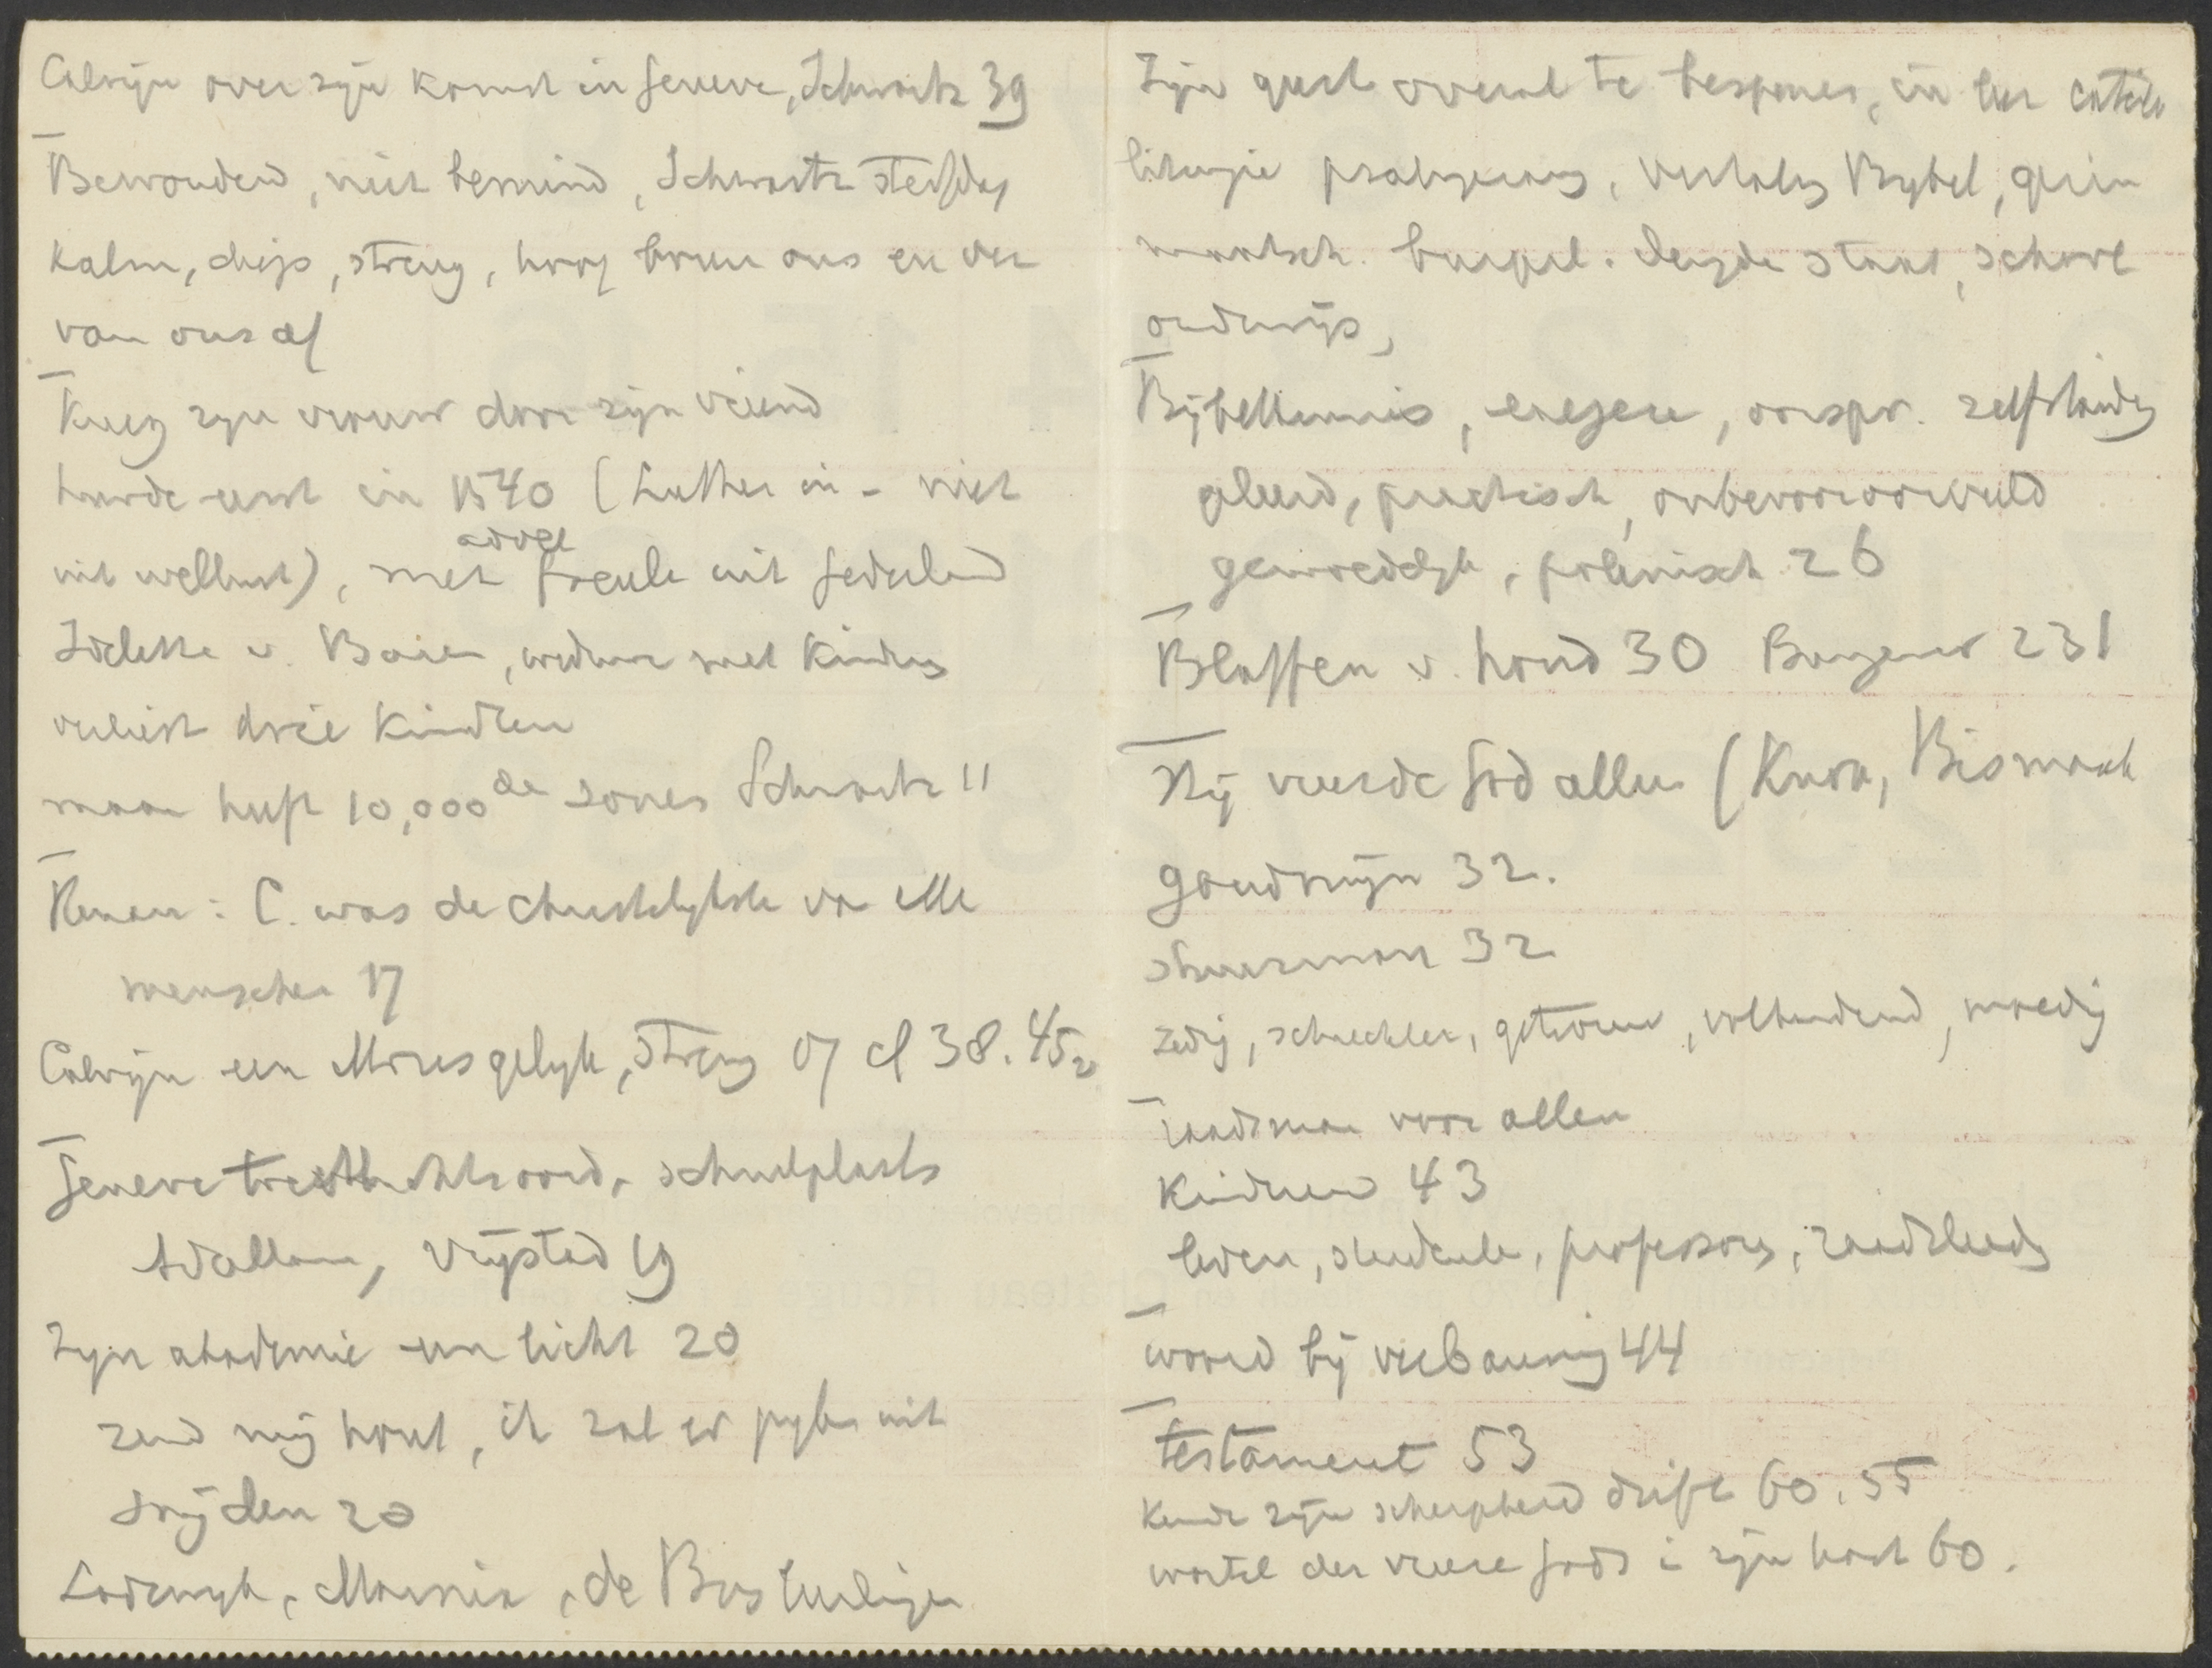 Calvijn over zijn komst in Geneve, Schwartz 39
Bewonderd, niet bemind, Schwartz sterfdag
kalm, diep, streng, hoog boven ons en ver
van ons af
Kreeg zijn vrouw door zijn vriend
huwde eerst in 1540 (Luther in - niet
uit wellust), met adell freule uit Gederland
Idelette v. Buren, weduwe met kinders
verliest drie kindren
maar heeft 10,000de zonen Schwartz 11
Renan: C. was de christelykste van alle
menschen 17
Calvijn een Mozes gelyk, streng 07 cf 38. 45
Geneve toevluchtsoord, schuilplaats
Adullam, vrijstad 19
Zijn akademie een licht 20
zend mij hout, ik zal er pylen uit
snijden 20
Lodewyk, Marnix, de Bres leerlingen
Zijn geest overal te bespeuren, in leer catech
liturgie psalmgezang, vertaling Bybel, gezin
maatsch. burgerl. deugden staat, school
onderwijs,
Bijbelkennis, exegese, oorspr. zelfstandig
geleerd, practisch, onbevooroordeeld
gemoedelyk, polemisch 26
Blaffen v. hond 30 Bungener 231
Hij vreesde God alleen (Knox, Bismarck
goudmijn 32.
stuurman 32
zedig, schuchter, getrouw, volhardend, moedig
raadsman voor allen
Kinderen 43
leven, studenten, professoren, raadsleden
woord bij verbanning 44
testament 53
Kende zijn scherpheid drift 60. 55
wortel der vreeze Gods in zijn hart 60.